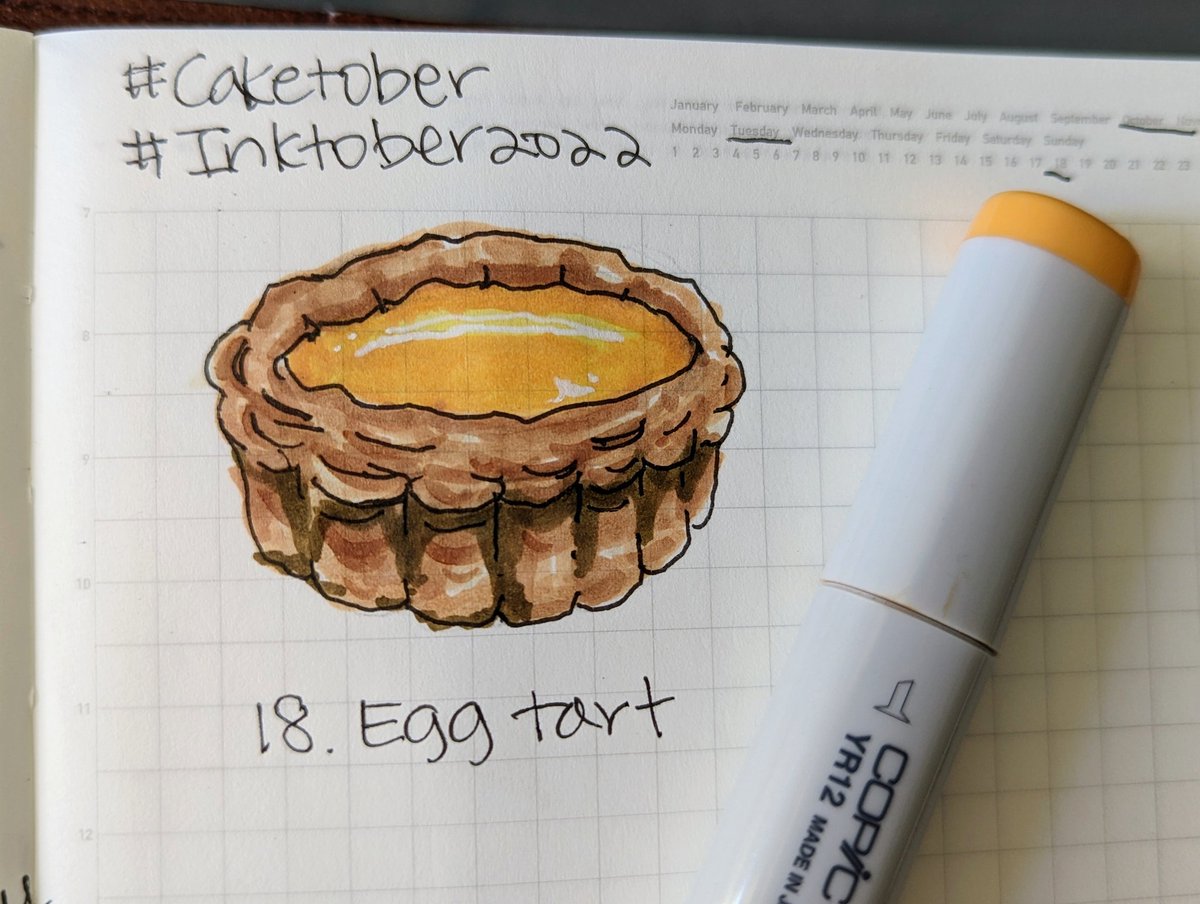 #Caketober
#Inktober2022
January February March April May June July August September October
Monday Tuesday Wednesday Thursday Friday Saturday Sunday
1 2 3 4 5 6 7 8 9 10 11 12 13 14 15 16 17 18 19 20 21 22 23
7
8
9
10
11
12
18. Egg tart
COPIC
YR12 MADE IN